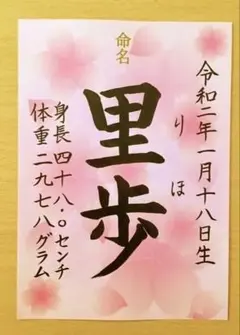 命名
令和二年一月十八日生
りほ
里歩
身長四十八・〇センチ
体重二九七八グラム